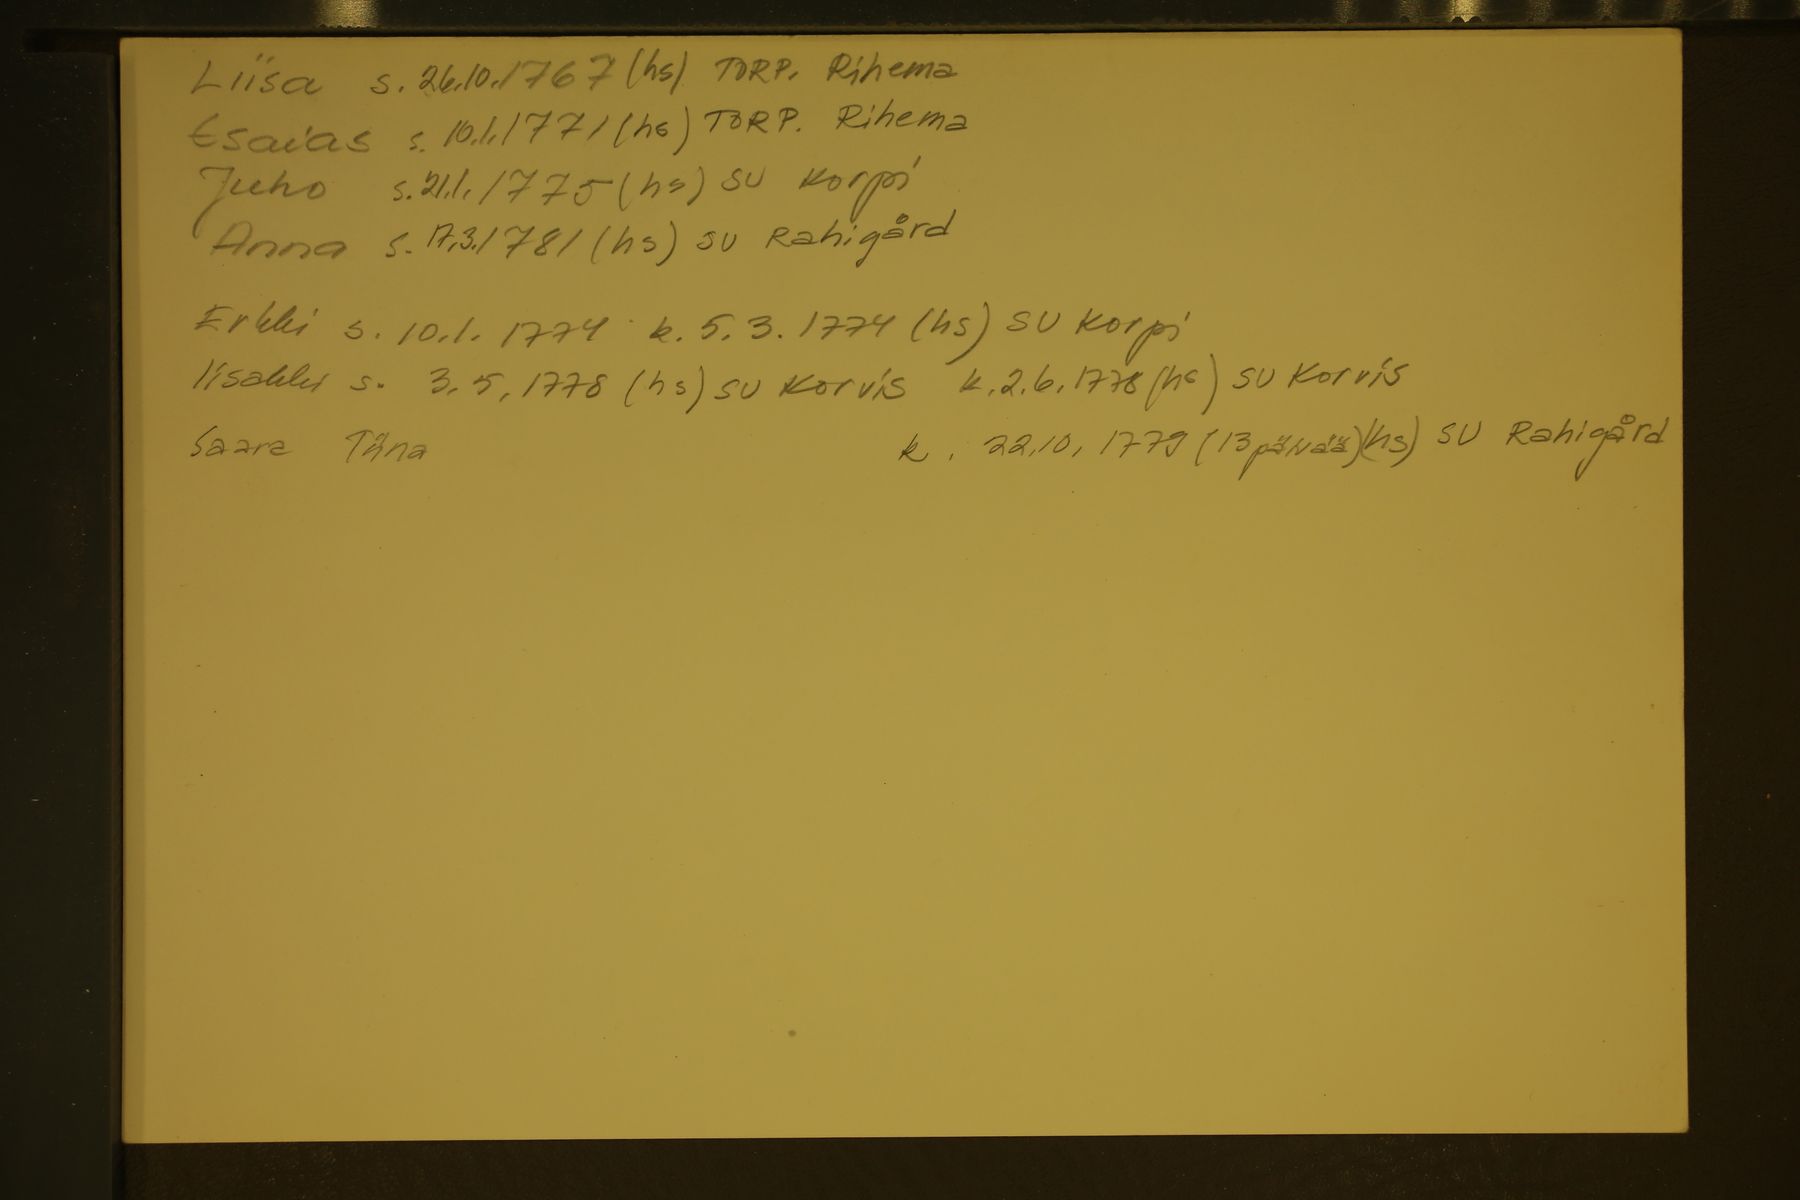 Liisa s. 26.10.1767 (hs) TORP. Rihema
Esaias s. 10.1.1771 (hs) TORP. Rihema
Juho s. 21.1.1775 (hs) SU Korpi
Anna s. 17.3.1781 (hs) SU Rahigård
Erkki s. 10.1.1774 k. 5.3.1774 (hs) SU Korpi
Iisakki s. 3.5.1778 (hs) SU Korvis k. 2.6.1778 (hs) SU Korvis
Saara Tiina k. 22.10.1779 (13 päivää) (hs) SU Rahigård